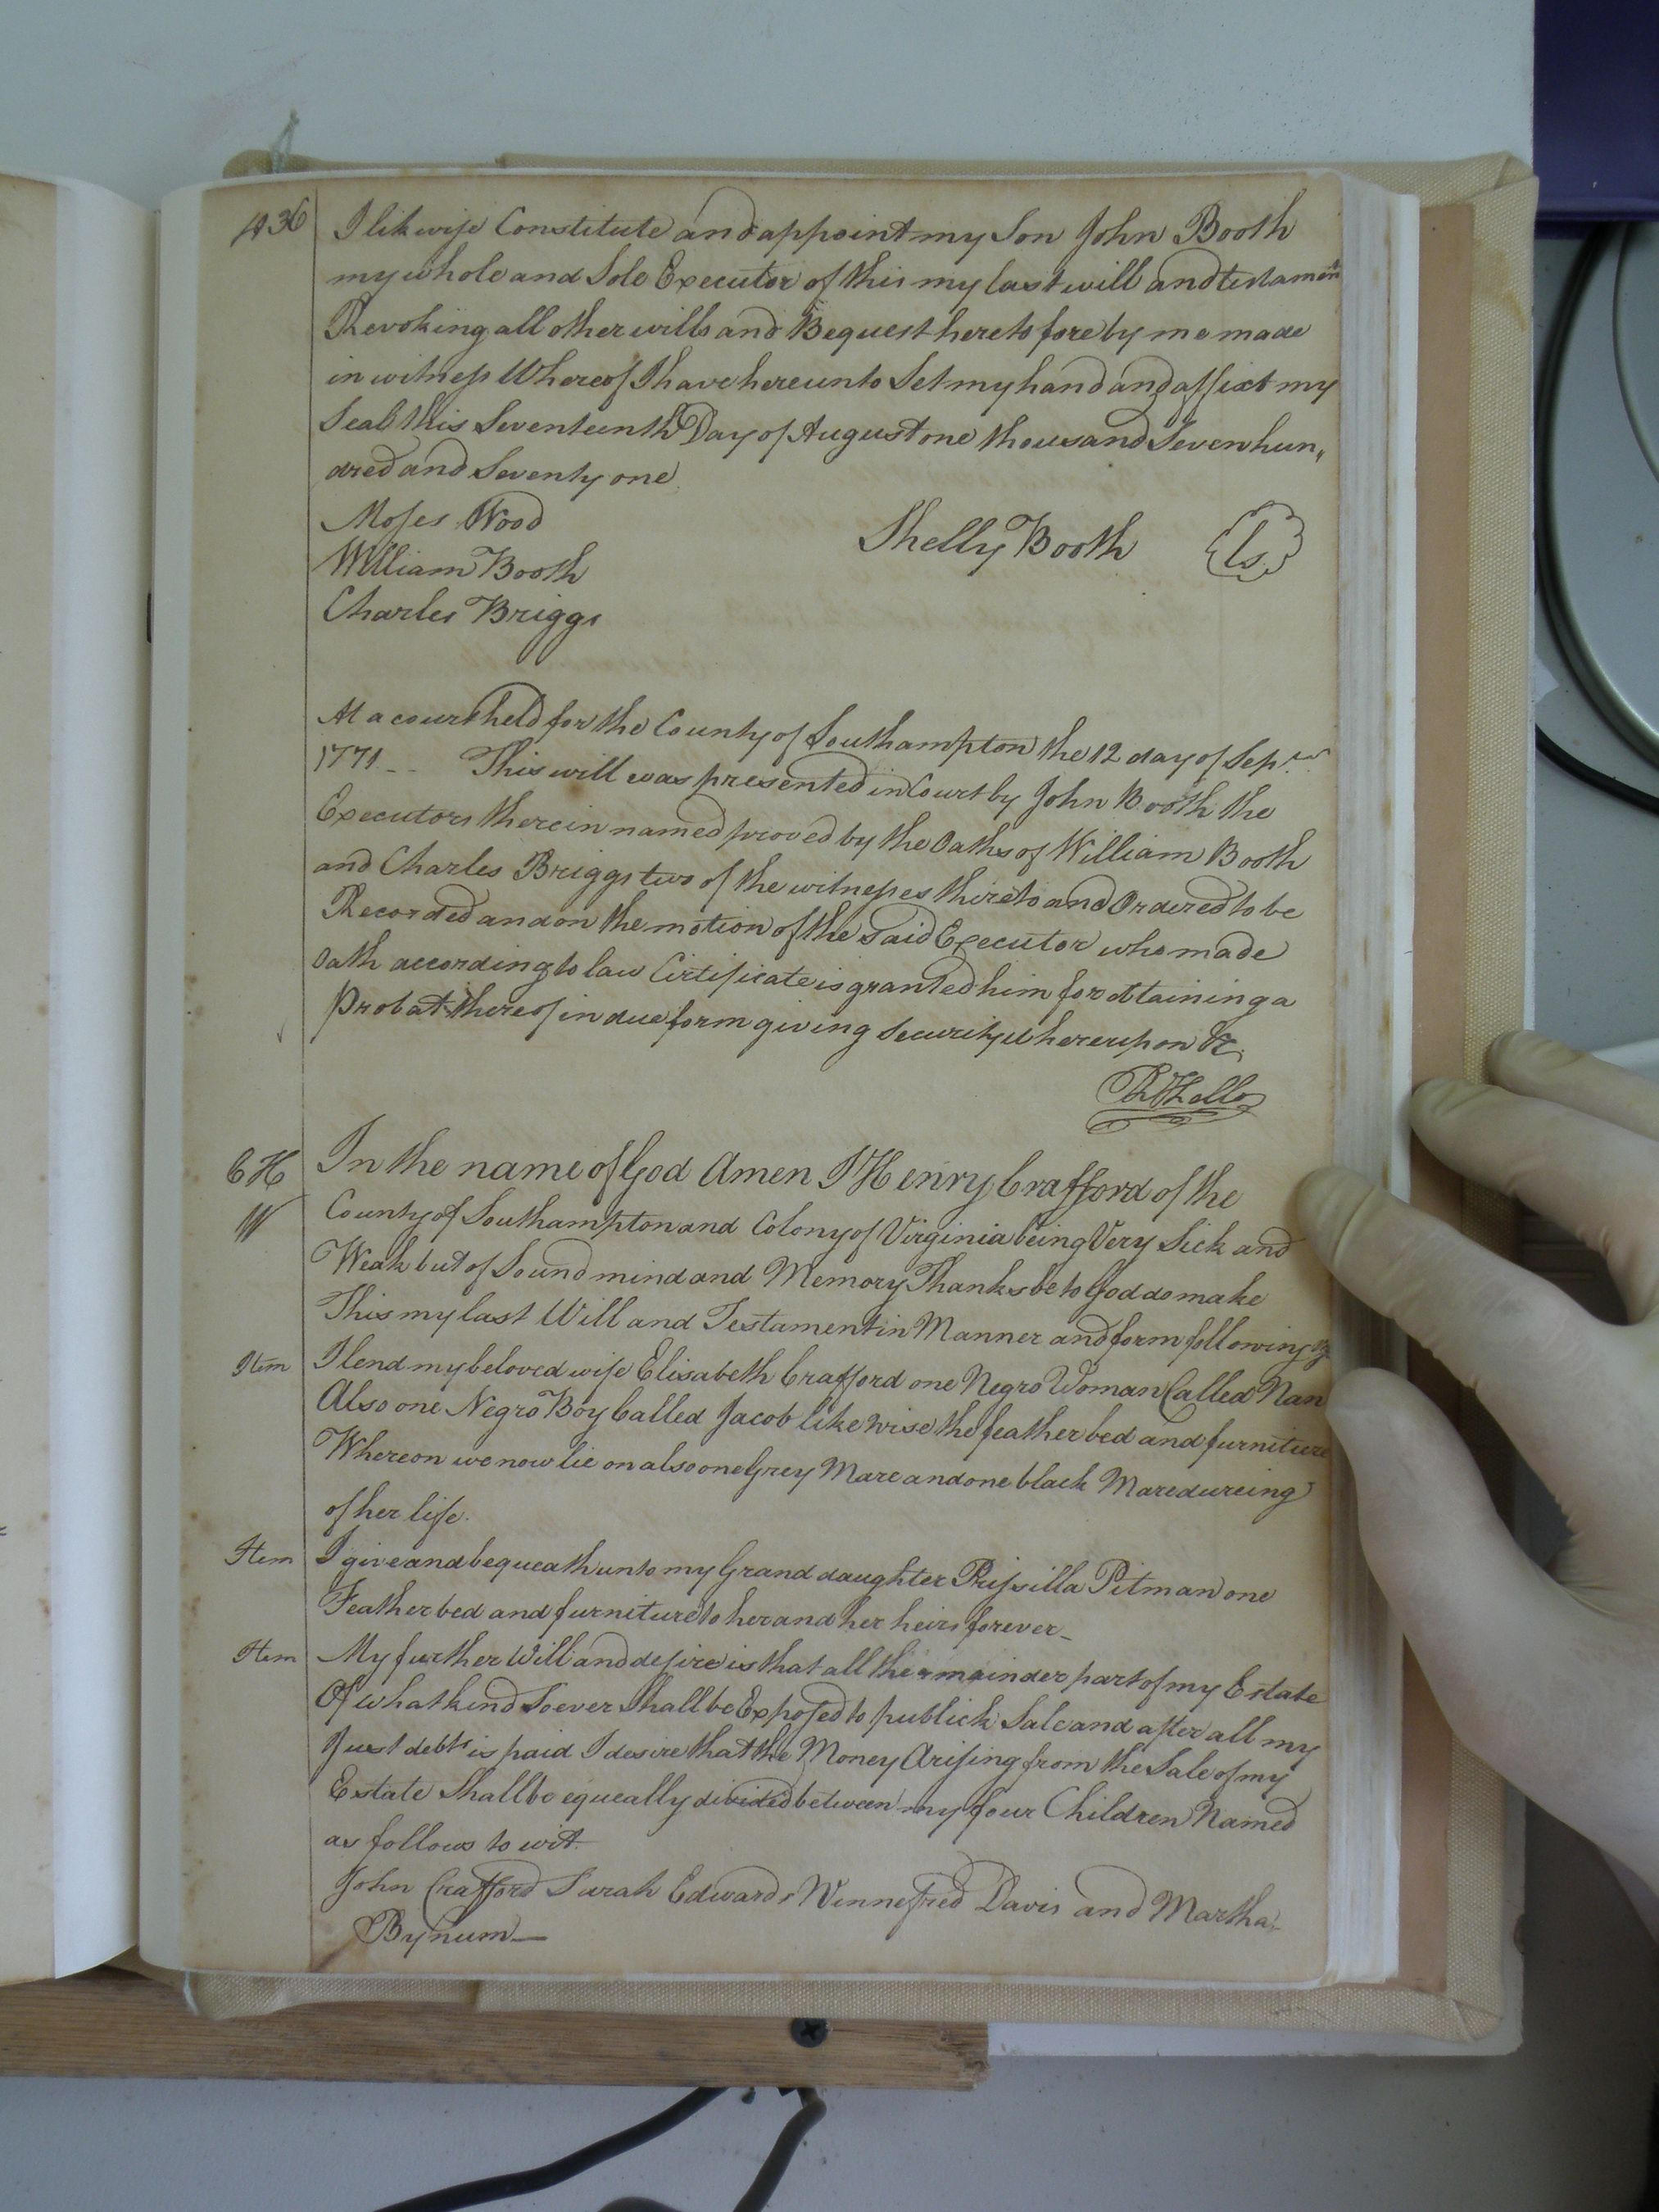 436
I likwise Constitute and appoint my Son John Booth
my whole and Sole Executor of this my last will and testament
Revoking all other wills and Bequest heretofore by me made
in witness Whereof I have hereunto Set my hand and affixt my
Seal this Seventeenth Day of August one thousand Seven hun,,
dred and Seventy one
Moses Wood
William Booth
Charles Briggs
Shelly Booth
Ls.
At a court held for the County of Southampton the 12 day of Sepr.
1771 -- This will was presented in Court by John Booth the
Executors therein named proved by the Oaths of William Booth
and Charles Briggs two of the witnesses thereto and Ordered to be
Recorded and on the motion of the Said Executor who made
Oath according to law Certificate is granted him for obtaining a
Probat thereof in due form giving Security whereupon &c.
CH
W
In the name of God Amen I Henry Crafford of the
County of Southampton and Colony of Virginia being Very Sick and
Weak but of Sound mind and Memory Thanks be to God do make
This my last Will and Testament in Manner and form following
Item I lend my beloved wife Elisabeth Crafford one Negro Woman Called Nan
Also one Negro Boy Called Jacob likewise the feather bed and furniture
Whereon we now lie on also one Grey Mare and one black Mare dureing
of her life.
Item I give and bequeath unto my Grand daughter Prissilla Pitman one
Feather bed and furniture to her and her heirs forever -
Item My further Will and desire is that all the remainder part of my Estate
Of what kind Soever Shall be Exposed to publick Sale and after all my
Just debts is paid I desire that the Money Arising from the Sale of my
Estate Shall be equeally divided between my four Children Named
as follows to wit.
John Crafford Sarah Edwards Winnefred Davis and Martha
Bynum -